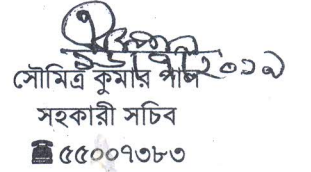 সৌমিত্র কুমার পাল
সহকারী সচিব
☎ ৫৫০০৭৩৮৩